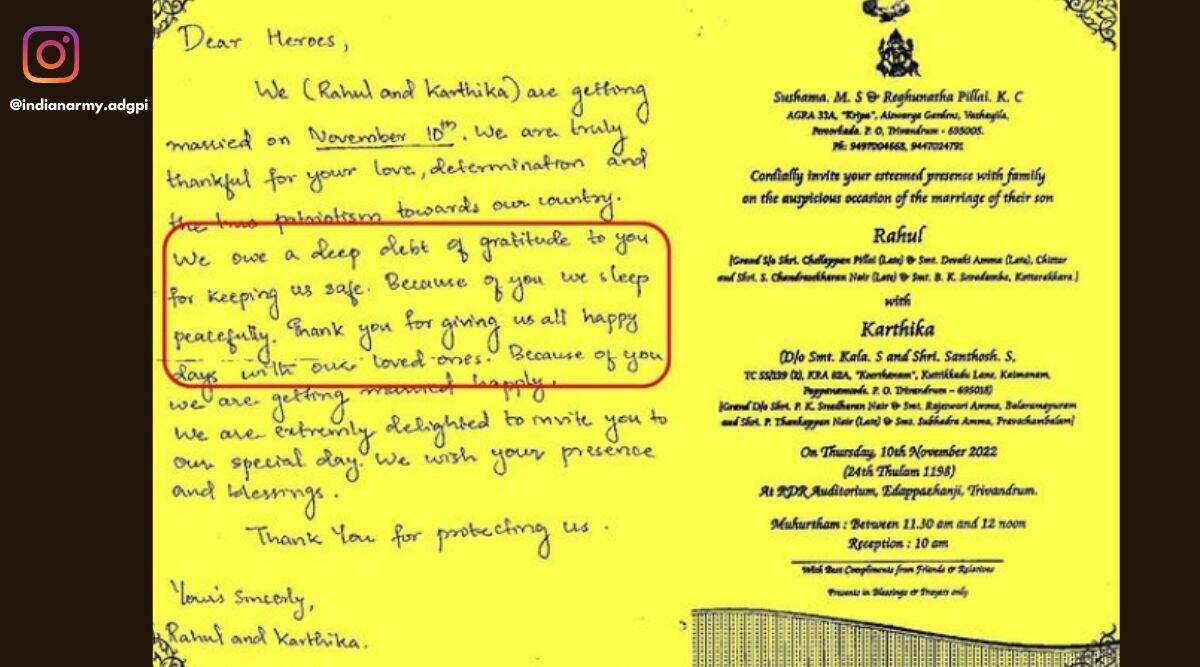 @indianarmy.adgpi
Dear Heroes,
We (Rahul and Karthika) are getting
married on November 10th. We are truly
thankful for your love, determination and
the true patriotism towards our country.
We owe a deep debt of gratitude to you
for keeping us safe. Because of you we sleep
peacefully. Thank you for giving us all happy
days with our loved ones. Because of you
we are getting married happily.
We are extremly delighted to invite you to
our special day. We wish your presence
and blessings.
Thank You for protecting us.
Your's Sincerly,
Rahul and Karthika.
Sushama. M. S & Reghunatha Pillai. K. C
AGRA 33A, "Kripa", Aiswarya Gardens, Vazhayila,
Peroorkada. P. O, Trivandrum - 695005.
Ph: 9497004668, 9447024791
Cordially invite your esteemed presence with family
on the auspicious occasion of the marriage of their son
Rahul
[Grand S/o Shri. Chellappan Pillai (Late) & Smt. Devaki Amma (Late),
and Shri. S. Chandrasekharan Nair (Late) & Smt. B. K. Soradamba, Kottarakkara]
with
Karthika
(D/o Smt. Kala. S and Shri. Santhosh. S,
TC 55/139 (2), KRA 62A, Kuttikkadu Lane, Kaimanam,
Pappanamcode. P. O. Trivandrum - 695018)
[Grand D/o Shri. P. K. Sreedharan Nair & Smt. Rajeswari Amma, Balaramapuram
and Shri. P. Thankappan Nair (Late) & Smt. Subhadra Amma, Pravachambalam]
On Thursday, 10th November 2022
(24th Thulam 1198)
At RDR Auditorium, Edappazhanji, Trivandrum.
Muhurtham : Between 11.30 am and 12 noon
Reception : 10 am
With Best Compliments from Friends & Relatives
Presents in Blessings & Prayers only